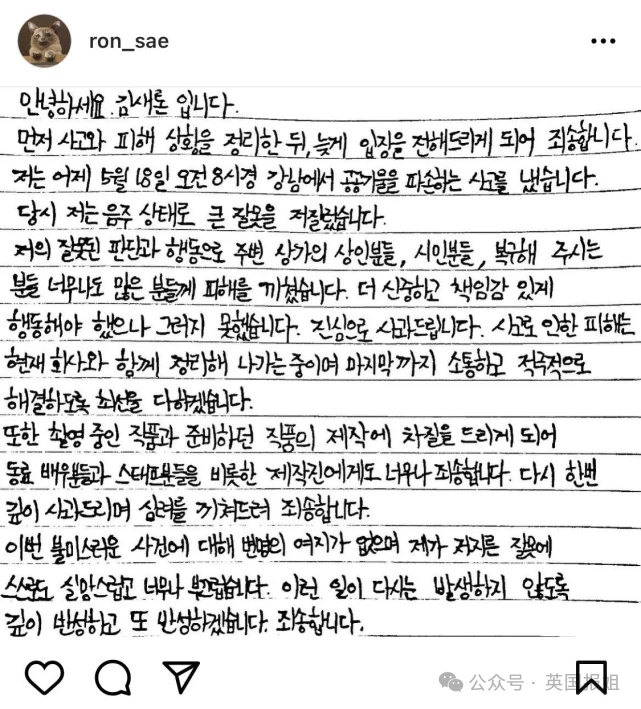 ron_sae
안녕하세요. 김새론 입니다.
먼저 사고와 피해 상황을 정리한 뒤, 늦게 입장을 전해드리게 되어 죄송합니다.
저는 어제 5월 18일 오전 8시경 강남에서 공공기물을 파손하는 사고를 냈습니다.
당시 저는 음주 상태로 큰 잘못을 저질렀습니다.
저의 잘못된 판단과 행동으로 주변 상가의 상인분들, 시민분들, 복구해 주시는
분들 너무나도 많은 분들께 피해를 끼쳤습니다. 더 신중하고 책임감 있게
행동해야 했으나 그러지 못했습니다. 진심으로 사과드립니다. 사고로 인한 피해는
현재 회사와 함께 정리해 나가는 중이며 마지막까지 소통하고 적극적으로
해결하도록 최선을 다하겠습니다.
또한 촬영 중인 작품과 준비하던 작품의 제작에 차질을 드리게 되어
동료 배우분들과 스태프분들을 비롯한 제작진에게도 너무나 죄송합니다. 다시 한번
깊이 사과드리며 심려를 끼쳐드려 죄송합니다.
이번 불미스러운 사건에 대해 변명의 여지가 없으며 제가 저지른 잘못에
스스로도 실망스럽고 너무나 부끄럽습니다. 이런 일이 다시는 발생하지 않도록
깊이 반성하고 또 반성하겠습니다. 죄송합니다.
公众号 · 英国报姐